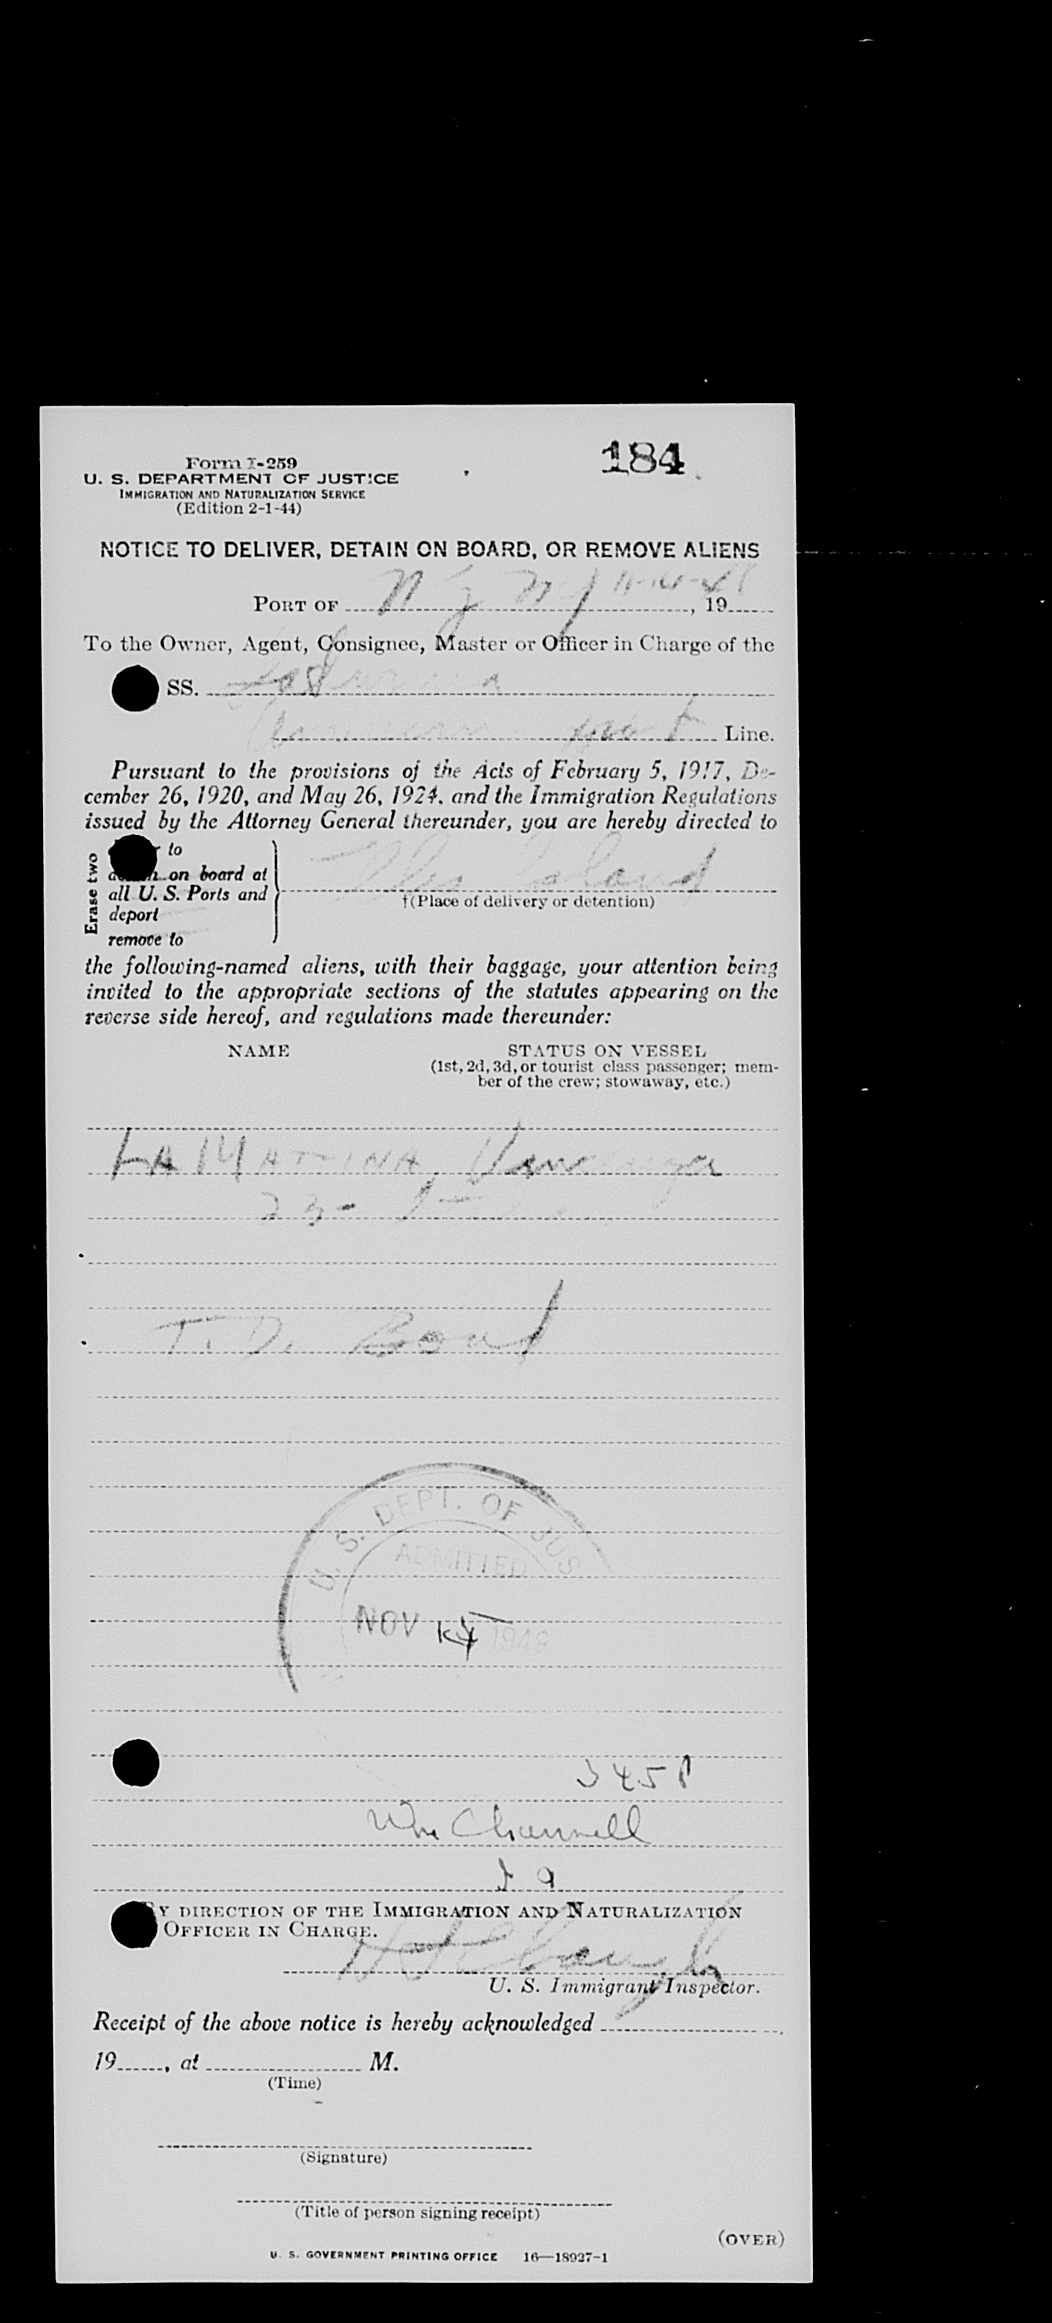 Form I-259
184
U. S. DEPARTMENT OF JUSTICE
IMMIGRATION AND NATURALIZATION SERVICE
(Edition 2-1-44)
NOTICE TO DELIVER, DETAIN ON BOARD, OR REMOVE ALIENS
PORT OF N Y N Y 11-14-48, 19
To the Owner, Agent, Consignee, Master or Officer in Charge of the
SS.
Line.
Pursuant to the provisions of the Acts of February 5, 1917, De-
cember 26, 1920, and May 26, 1924, and the Immigration Regulations
issued by the Attorney General thereunder, you are hereby directed to
Erase two
to
on board at
all U. S. Ports and
deport
remove to
Ellis Island
†(Place of delivery or detention)
the following-named aliens, with their baggage, your attention being
invited to the appropriate sections of the statutes appearing on the
reverse side hereof, and regulations made thereunder:
NAME
STATUS ON VESSEL
(1st, 2d, 3d, or tourist class passenger; mem-
ber of the crew; stowaway, etc.)
LA MATTINA,
23-
T. D. Bond
U. S. DEPT. OF JUS
ADMITTED
NOV 1948
3458
Wm Channell
BY DIRECTION OF THE IMMIGRATION AND NATURALIZATION
OFFICER IN CHARGE.
U. S. Immigrant Inspector.
Receipt of the above notice is hereby acknowledged
19, at M.
(Time)
(Signature)
(Title of person signing receipt)
(OVER)
U. S. GOVERNMENT PRINTING OFFICE 16—18927-1